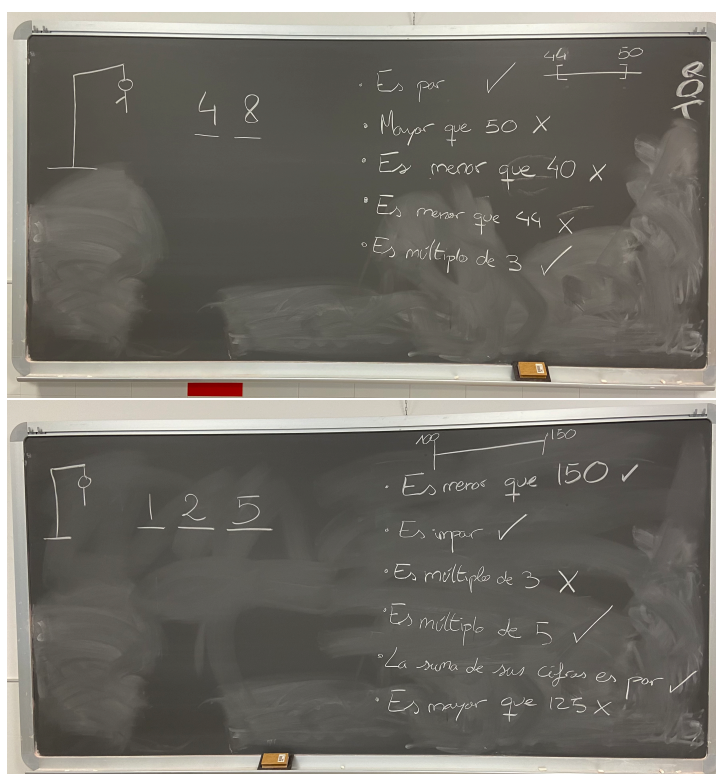 44 50
4 8
· Es par ✓
· Mayor que 50 X
· Es menor que 40 X
· Es menor que 44 X
· Es múltiplo de 3 ✓
100 150
1 2 5
· Es menor que 150 ✓
· Es impar ✓
· Es múltiplo de 3 X
· Es múltiplo de 5 ✓
· La suma de sus cifras es par ✓
· Es mayor que 125 X